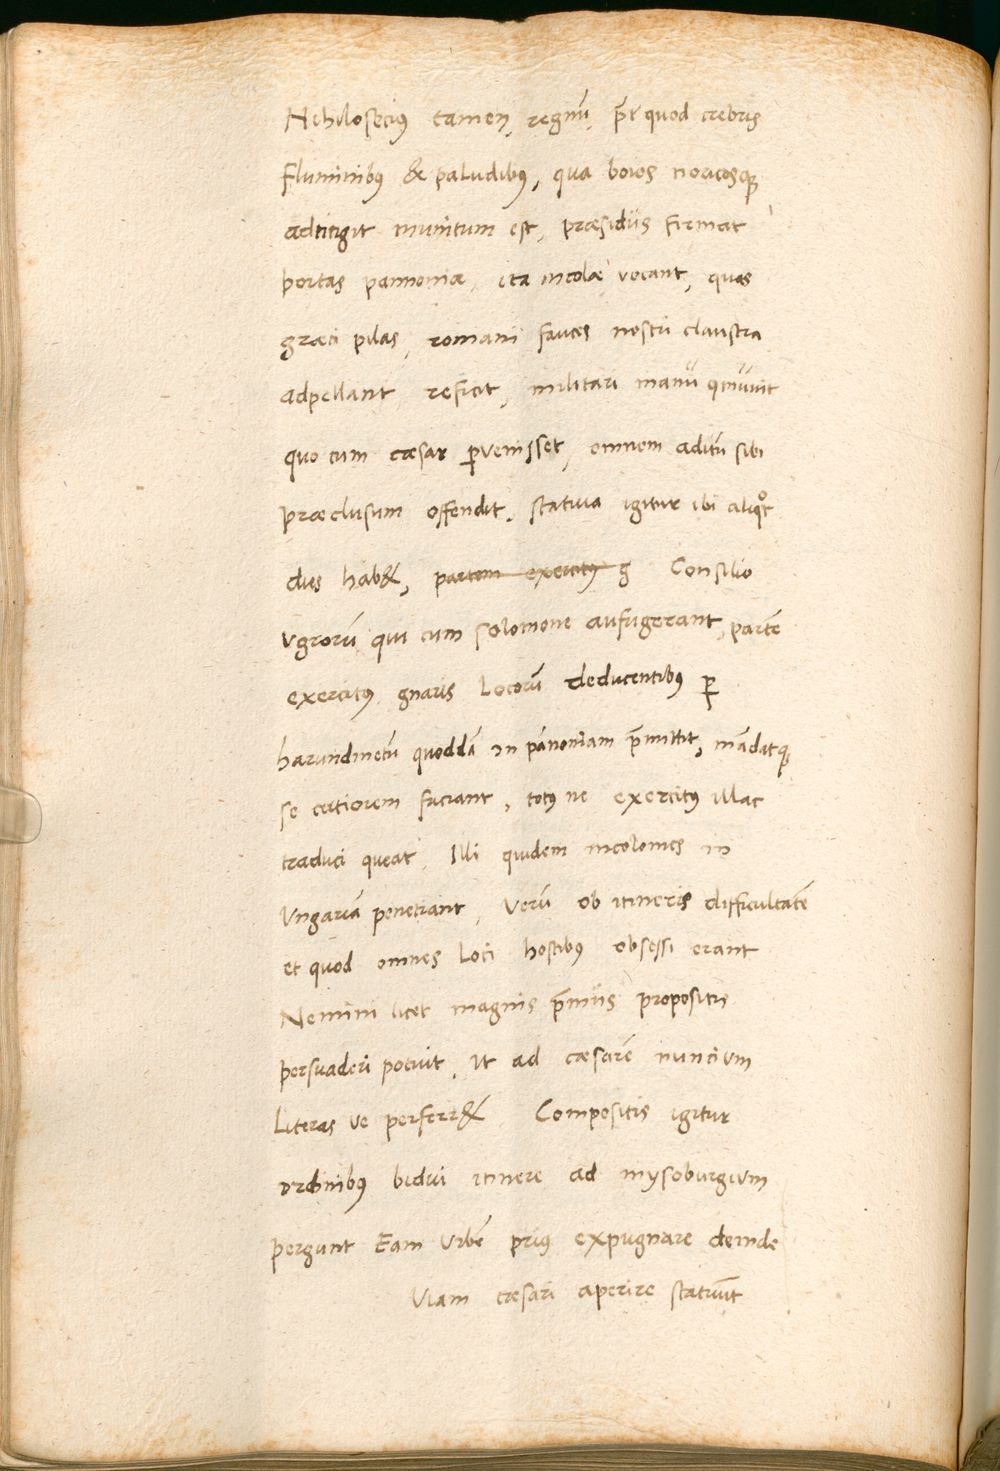 Nihilosecius tamen, regnū, p̄t quod crebris
Fluminibꝰ & paludibꝰ, qua boios noricosqꝫ
adtingit munitum est, præsidiis firmat
portas pannoniæ, ita incolæ vocant, quas
græci pilas, romani fauces nostri claustra
adpellant reficit, militari manu
quo cum cæsar ꝑvenisset, omnem aditū sibi
præclusum offendit. stativa igitur ibi aliqͦt
dies hab&, partem exercitꝰ g Consilio
vgrorū qui cum solomone aufugerant, partē
exercitus gnaris locorū deducentibꝰ ꝑ
harundinetū quoddā in pānoniam p̄mittit, mādatqꝫ
se certiorem faciant, totꝰ ne exercitꝰ illac
traduci queat. Illi quidem incolomes in
Vngariā penetrant, Verū ob itineris difficultatē
et quod omnes loci hostibꝰ obsessi erant
Nemini licet magnis p̄miis propositis
persuaderi potuit. ut ad cæsarē nuncium
literas ve perferr& Compositis igitur
ordinibꝰ bidui itinere ad mysoburgium
pergunt Eam Vrbē priꝰ expugnare deinde
Viam cæsari aperire statuūt